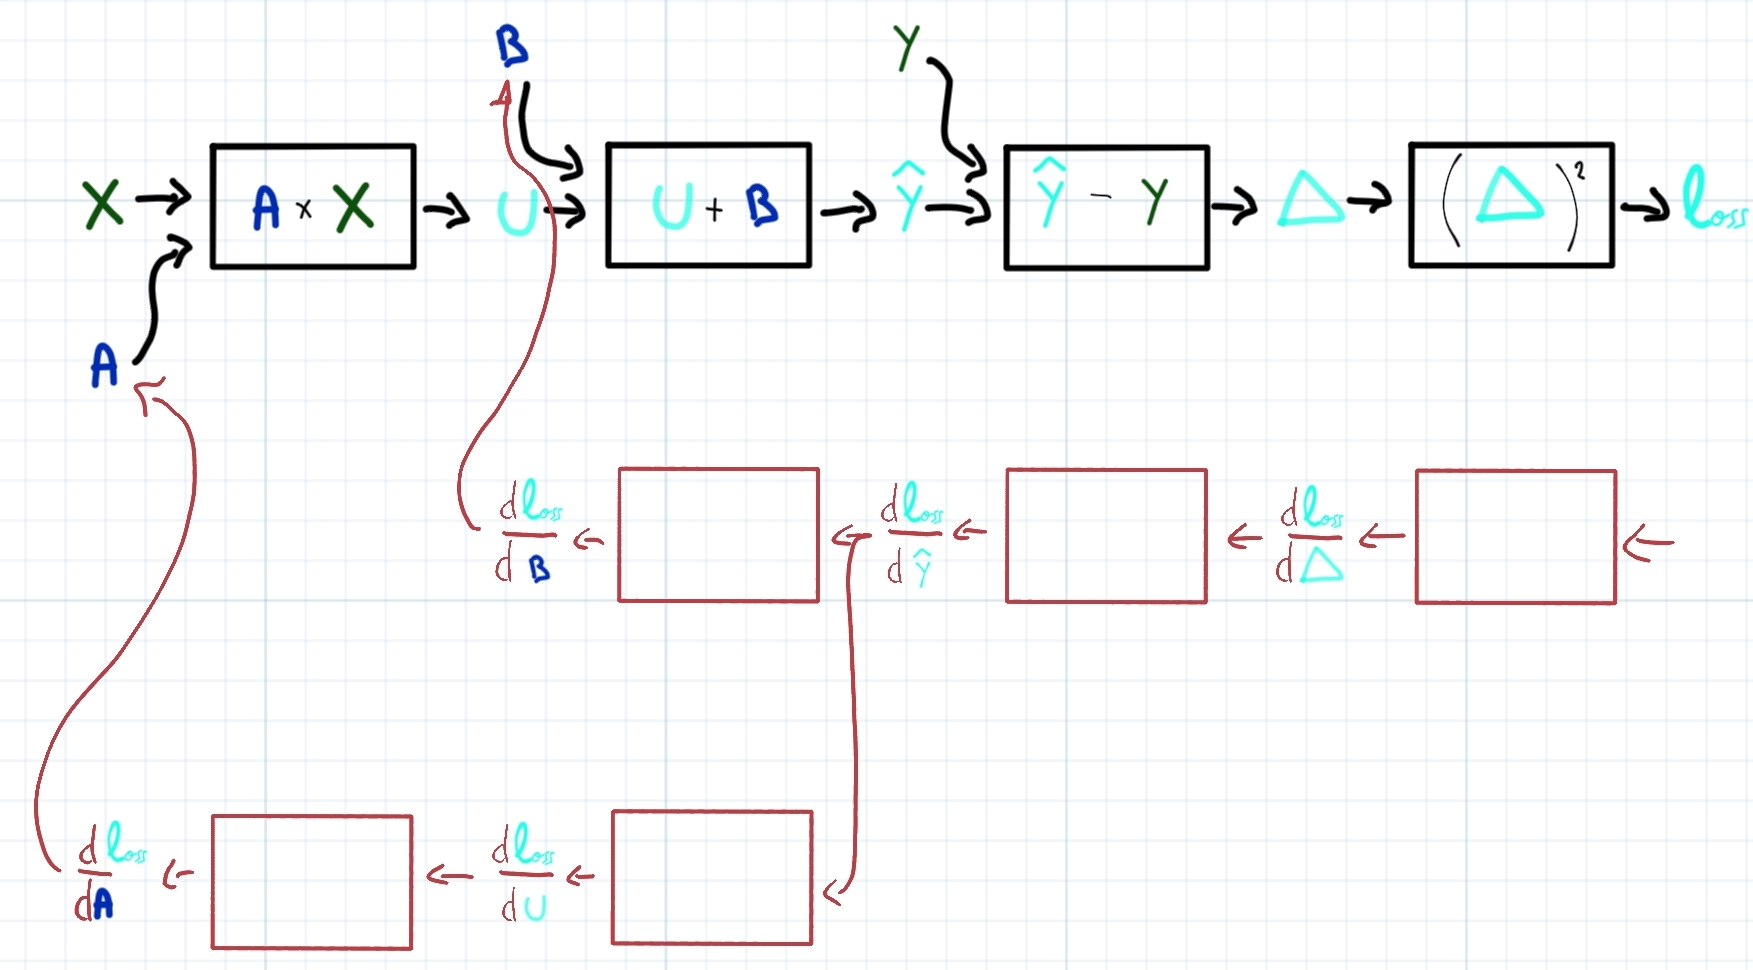 B
Y
X
A × X
U
U + B
Ŷ
Ŷ - Y
Δ
(Δ)²
loss
A
dloss
dB
dloss
dŶ
dloss
dΔ
dloss
dA
dloss
dU